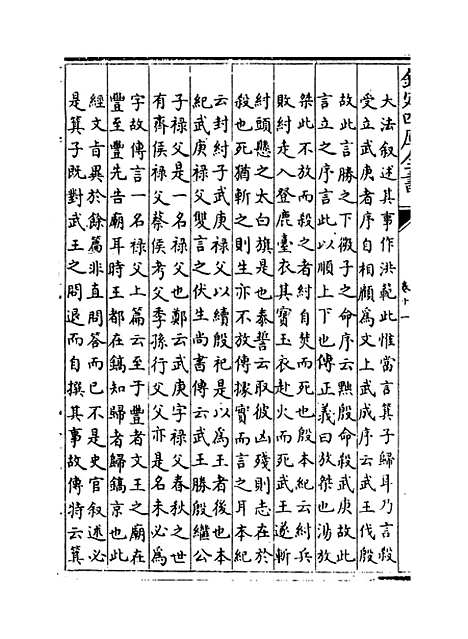 欽定四庫全書
卷十一
大法叙述其事作洪範此惟當言箕子歸耳乃言殺
受立武庚者序自相顧為文上武成序云武王伐殷
故此言勝之下微子之命序云黜殷命殺武庚故此
言立之序言此以順上下也傳正義曰放桀也湯放
桀此不放而殺之者紂自焚而死也殷本紀云紂兵
敗紂走入登鹿臺衣其寶玉衣赴火而死武王遂斬
紂頭懸之太白旗是也泰誓云取彼凶殘則志在於
殺也死猶斬之則生亦不放傳據實而言之耳本紀
云封紂子武庚祿父以續殷祀是以為王者後也本
紀武庚祿父雙言之伏生尚書傳云武王勝殷繼公
子祿父是一名祿父也鄭云武庚字祿父春秋之世
有齊侯祿父蔡侯考父季孫行父父亦是名未必為
字故傳言一名祿父上篇云至于豐者文王之廟在
豐至豐先告廟耳時王都在鎬知歸者歸鎬京也此
經文旨異於餘篇非直問答而已不是史官叙述必
是箕子既對武王之問退而自撰其事故傳特云箕